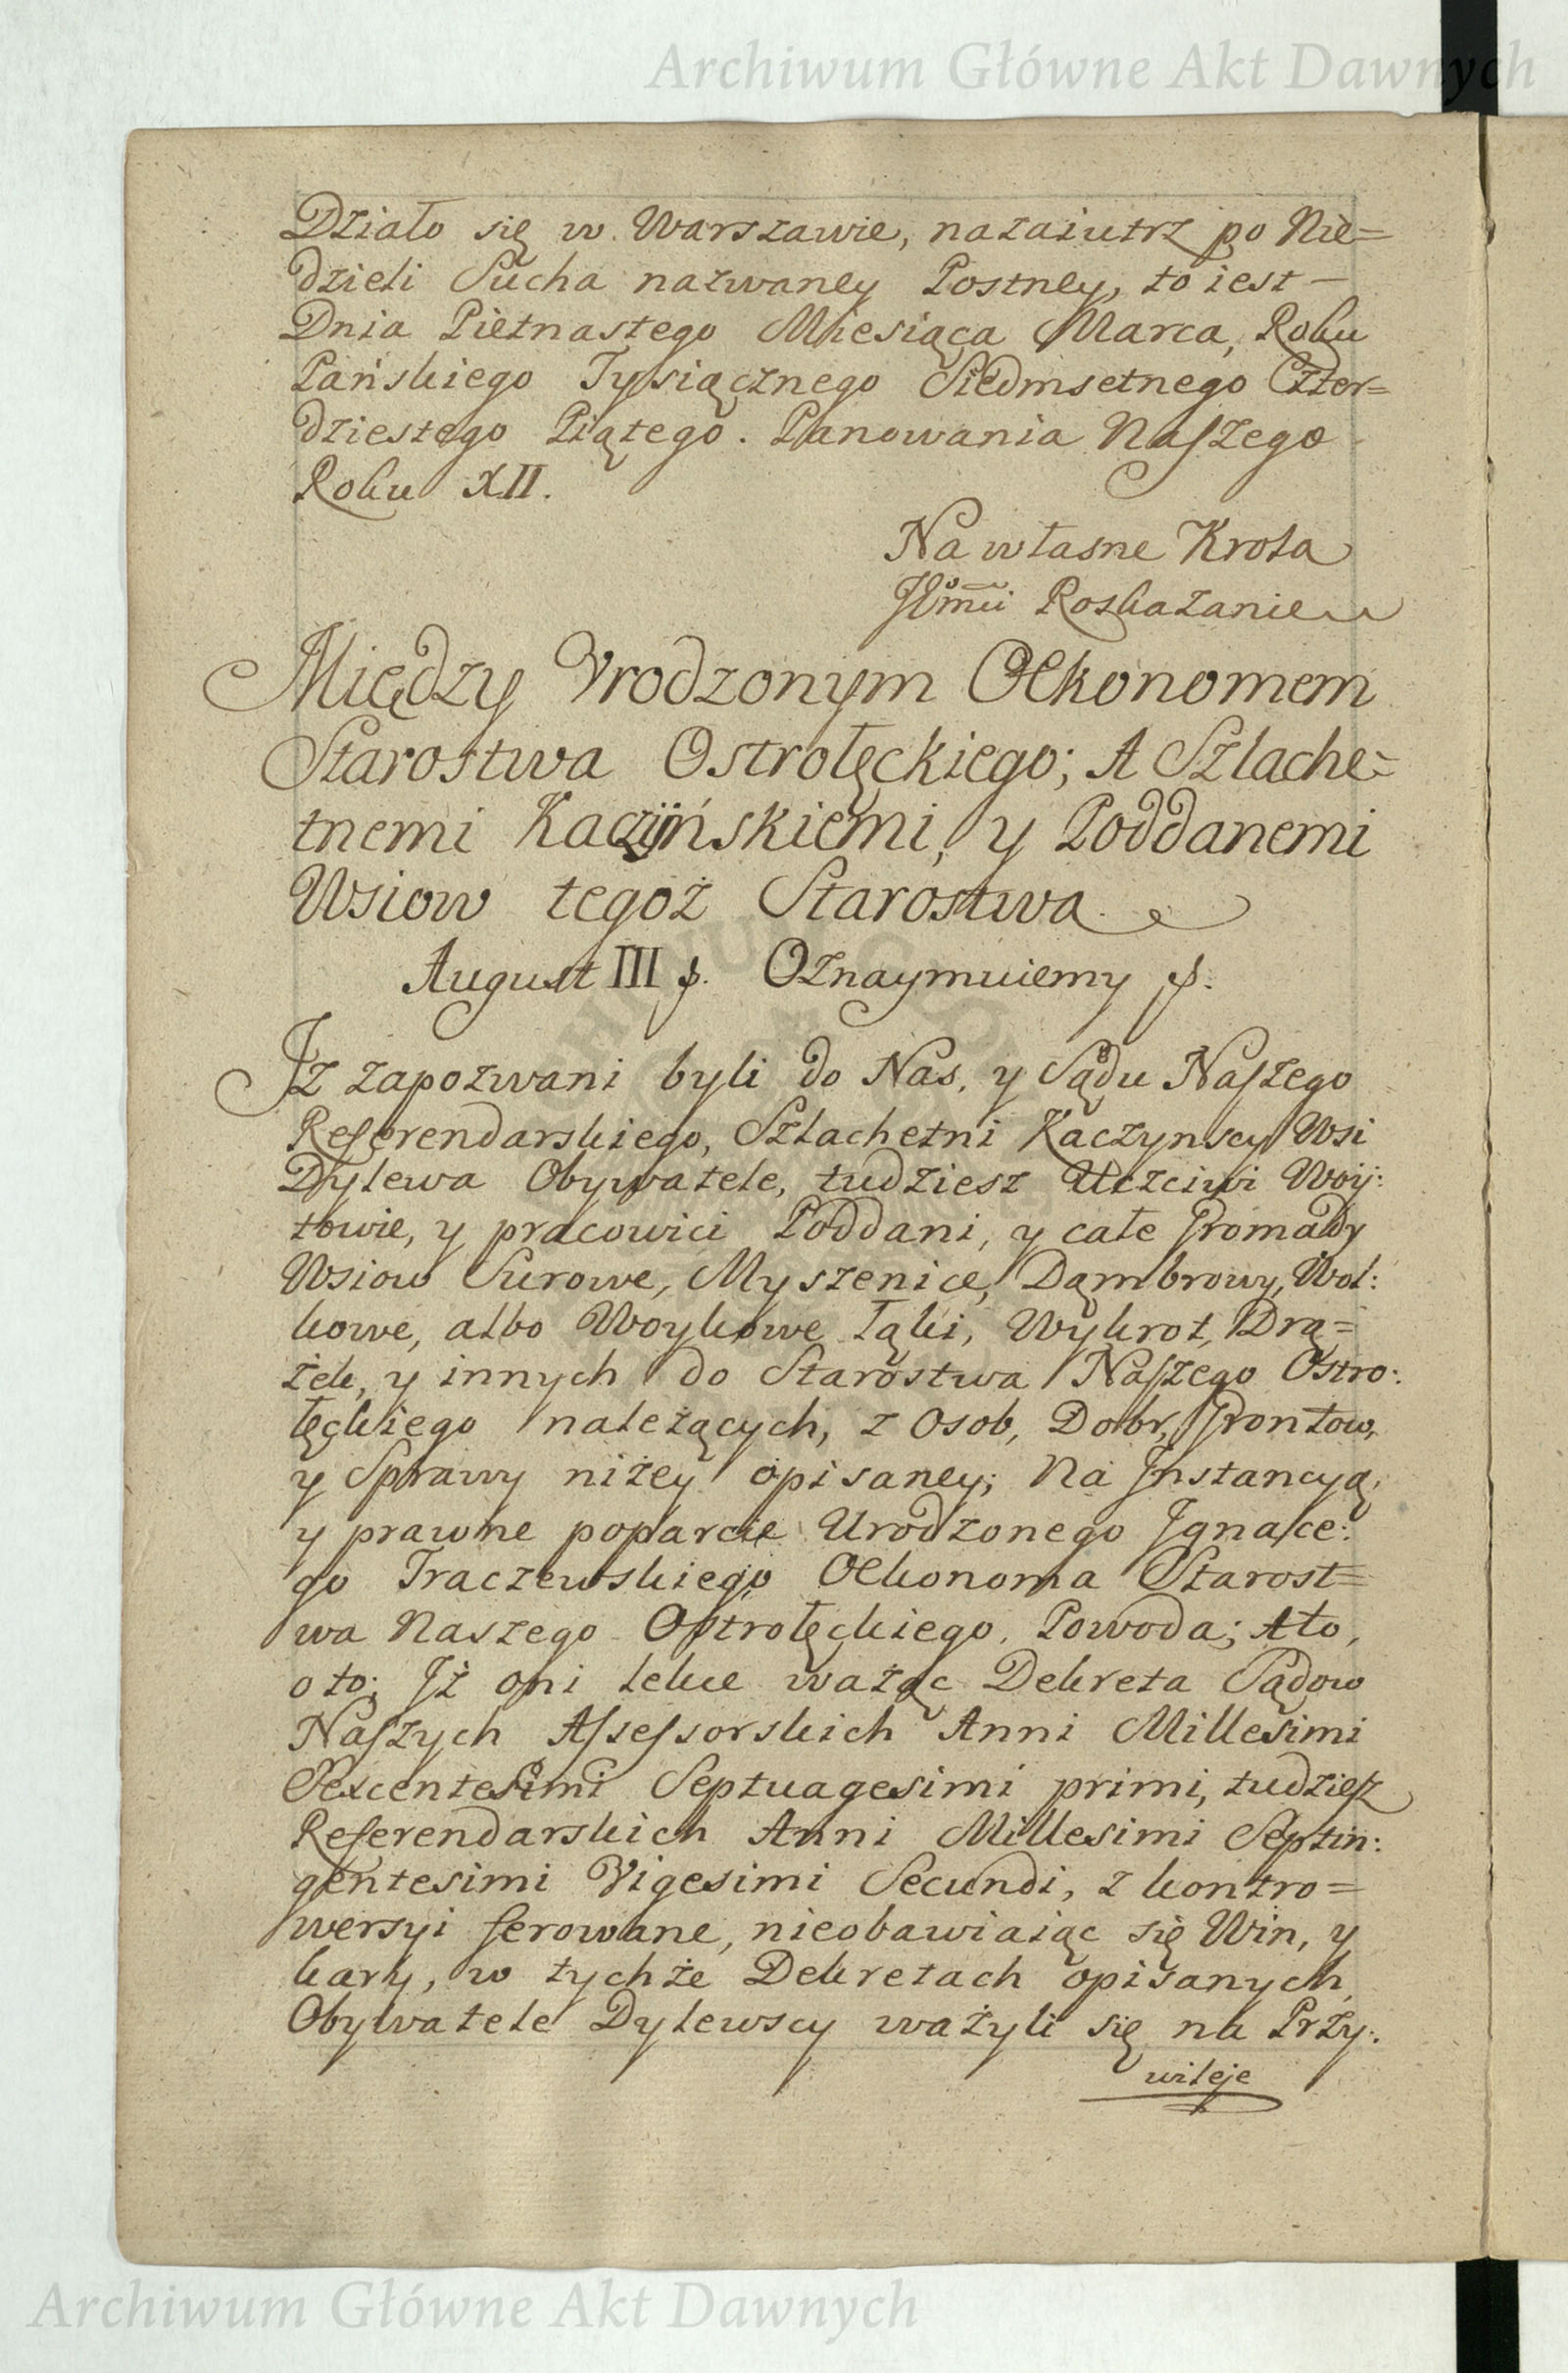 Archiwum Główne Akt Dawnych
Działo się w Warszawie, nazaiutrz po Nie=
dzieli Sucha nazwaney Postney, to iest —
Dnia Pietnastego Miesiąca Marca, Roku
Pańskiego Tysiącznego Siedmsetnego Czter=
dziestego Piątego. Panowania Naszego
Roku XII.
Na własne Krola
JKmci Roskazanie
Między Vrodzonym Oekonomem
Starostwa Ostrołęckiego; A Szlache=
tnemi Kaczyńskiemi, y Poddanemi
Wsiow tegoż Starostwa
August III p. Oznaymuiemy p.
Jz zapozwani byli do Nas, y Sądu Naszego
Referendarskiego, Szlachetni Kaczynscy Wsi
Dylewa Obywatele, tudziesz Uczciwi Woy:
towie, y pracowici Poddani, y całe Gromady
Wsiow Surowe, Myszenice, Dąmbrowy, Wol:
kowe, albo Woykowe Łąki, Wykrot, Drą=
żek, y innych do Starostwa Naszego Ostro:
łęckiego należących, z Osob, Dobr, Grontow,
y Sprawy niżey opisaney; Na Jnstancyą,
y prawne poparcie Urodzonego Jgnace:
go Traczewskiego Oekonoma Starost=
wa Naszego Ostrołęckiego, Powoda; A to,
o to; Jż oni lekce ważąc Dekreta Sądow
Naszych Assessorskich Anni Millesimi
Sexcentesimi Septuagesimi primi, tudziesz
Referendarskich Anni Millesimi Septin:
gentesimi Vigesimi Secundi, z kontro=
wersyi ferowane, nieobawiaiąc się Win, y
kary, w tychże Dekretach opisanych,
Obywatele Dylewscy ważyli się na Przy:
wileje
Archiwum Główne Akt Dawnych